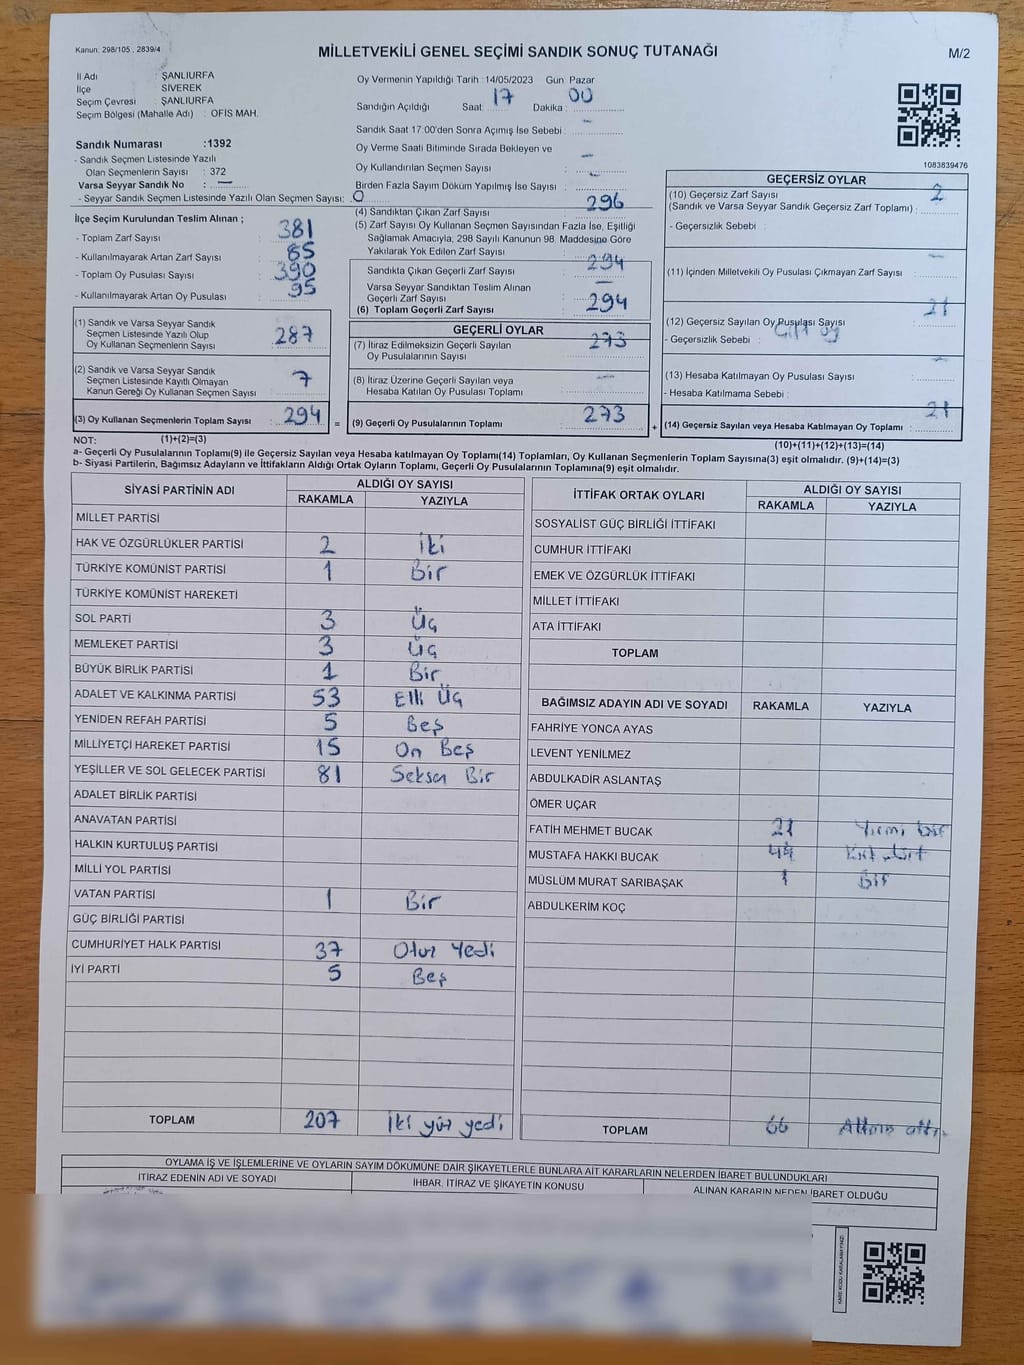 Kanun: 298/105 , 2839/4
MİLLETVEKİLİ GENEL SEÇİMİ SANDIK SONUÇ TUTANAĞI
M/2
İl Adı : ŞANLIURFA
İlçe : SİVEREK
Seçim Çevresi : ŞANLIURFA
Seçim Bölgesi (Mahalle Adı) : OFİS MAH.
Sandık Numarası :1392
- Sandık Seçmen Listesinde Yazılı
Olan Seçmenlerin Sayısı : 372
Varsa Seyyar Sandık No : —
- Seyyar Sandık Seçmen Listesinde Yazılı Olan Seçmen Sayısı: 0
Oy Vermenin Yapıldığı Tarih : 14/05/2023 Gün Pazar
Sandığın Açıldığı Saat: 17 Dakika: 00
Sandık Saat 17:00'den Sonra Açımış İse Sebebi : —
Oy Verme Saati Bitiminde Sırada Bekleyen ve
Oy Kullandırılan Seçmen Sayısı : —
Birden Fazla Sayım Döküm Yapılmış İse Sayısı : —
1083839476
İlçe Seçim Kurulundan Teslim Alınan ;
- Toplam Zarf Sayısı : 381
- Kullanılmayarak Artan Zarf Sayısı : 85
- Toplam Oy Pusulası Sayısı : 390
- Kullanılmayarak Artan Oy Pusulası : 95
(1) Sandık ve Varsa Seyyar Sandık
Seçmen Listesinde Yazılı Olup
Oy Kullanan Seçmenlerin Sayısı : 287
(2) Sandık ve Varsa Seyyar Sandık
Seçmen Listesinde Kayıtlı Olmayan
Kanun Gereği Oy Kullanan Seçmen Sayısı : 7
(3) Oy Kullanan Seçmenlerin Toplam Sayısı : 294
(1)+(2)=(3)
(4) Sandıktan Çıkan Zarf Sayısı : 296
(5) Zarf Sayısı Oy Kullanan Seçmen Sayısından Fazla İse, Eşitliği
Sağlamak Amacıyla, 298 Sayılı Kanunun 98. Maddesine Göre
Yakılarak Yok Edilen Zarf Sayısı :
Sandıkta Çıkan Geçerli Zarf Sayısı : 294
Varsa Seyyar Sandıktan Teslim Alınan
Geçerli Zarf Sayısı : —
(6) Toplam Geçerli Zarf Sayısı : 294
GEÇERLİ OYLAR
(7) İtiraz Edilmeksizin Geçerli Sayılan
Oy Pusulalarının Sayısı : 273
(8) İtiraz Üzerine Geçerli Sayılan veya
Hesaba Katılan Oy Pusulası Toplamı : —
= (9) Geçerli Oy Pusulalarının Toplamı : 273
GEÇERSİZ OYLAR
(10) Geçersiz Zarf Sayısı
(Sandık ve Varsa Seyyar Sandık Geçersiz Zarf Toplamı) : 2
- Geçersizlik Sebebi :
(11) İçinden Milletvekili Oy Pusulası Çıkmayan Zarf Sayısı : —
(12) Geçersiz Sayılan Oy Pusulası Sayısı : 21
- Geçersizlik Sebebi : Çift oy
(13) Hesaba Katılmayan Oy Pusulası Sayısı : —
- Hesaba Katılmama Sebebi :
+ (14) Geçersiz Sayılan veya Hesaba Katılmayan Oy Toplamı : 21
(10)+(11)+(12)+(13)=(14)
NOT:
a- Geçerli Oy Pusulalarının Toplamı(9) ile Geçersiz Sayılan veya Hesaba katılmayan Oy Toplamı(14) Toplamları, Oy Kullanan Seçmenlerin Toplam Sayısına(3) eşit olmalıdır. (9)+(14)=(3)
b- Siyasi Partilerin, Bağımsız Adayların ve İttifakların Aldığı Ortak Oyların Toplamı, Geçerli Oy Pusulalarının Toplamına(9) eşit olmalıdır.
SİYASİ PARTİNİN ADI ALDIĞI OY SAYISI
RAKAMLA YAZIYLA
MİLLET PARTİSİ
HAK VE ÖZGÜRLÜKLER PARTİSİ 2 İki
TÜRKİYE KOMÜNİST PARTİSİ 1 Bir
TÜRKİYE KOMÜNİST HAREKETİ
SOL PARTİ 3 Üç
MEMLEKET PARTİSİ 3 Üç
BÜYÜK BİRLİK PARTİSİ 1 Bir
ADALET VE KALKINMA PARTİSİ 53 Elli Üç
YENİDEN REFAH PARTİSİ 5 Beş
MİLLİYETÇİ HAREKET PARTİSİ 15 On Beş
YEŞİLLER VE SOL GELECEK PARTİSİ 81 Seksen Bir
ADALET BİRLİK PARTİSİ
ANAVATAN PARTİSİ
HALKIN KURTULUŞ PARTİSİ
MİLLİ YOL PARTİSİ
VATAN PARTİSİ 1 Bir
GÜÇ BİRLİĞİ PARTİSİ
CUMHURİYET HALK PARTİSİ 37 Otuz Yedi
İYİ PARTİ 5 Beş
TOPLAM 207 İki yüz yedi
İTTİFAK ORTAK OYLARI ALDIĞI OY SAYISI
RAKAMLA YAZIYLA
SOSYALİST GÜÇ BİRLİĞİ İTTİFAKI
CUMHUR İTTİFAKI
EMEK VE ÖZGÜRLÜK İTTİFAKI
MİLLET İTTİFAKI
ATA İTTİFAKI
TOPLAM
BAĞIMSIZ ADAYIN ADI VE SOYADI RAKAMLA YAZIYLA
FAHRİYE YONCA AYAS
LEVENT YENİLMEZ
ABDULKADİR ASLANTAŞ
ÖMER UÇAR
FATİH MEHMET BUCAK 21 Yirmi bir
MUSTAFA HAKKI BUCAK 44 Kırk dört
MÜSLÜM MURAT SARIBAŞAK 1 Bir
ABDULKERİM KOÇ
TOPLAM 66 Altmış altı
OYLAMA İŞ VE İŞLEMLERİNE VE OYLARIN SAYIM DÖKÜMÜNE DAİR ŞİKAYETLERLE BUNLARA AİT KARARLARIN NELERDEN İBARET BULUNDUKLARI
İTİRAZ EDENİN ADI VE SOYADI İHBAR, İTİRAZ VE ŞİKAYETİN KONUSU ALINAN KARARIN NEDEN İBARET OLDUĞU